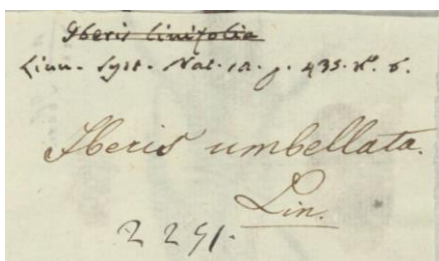 Iberis linifolia
Linn. Syst. Nat. 12. p. 435. no. 6.
Iberis umbellata.
Lin.
2251.